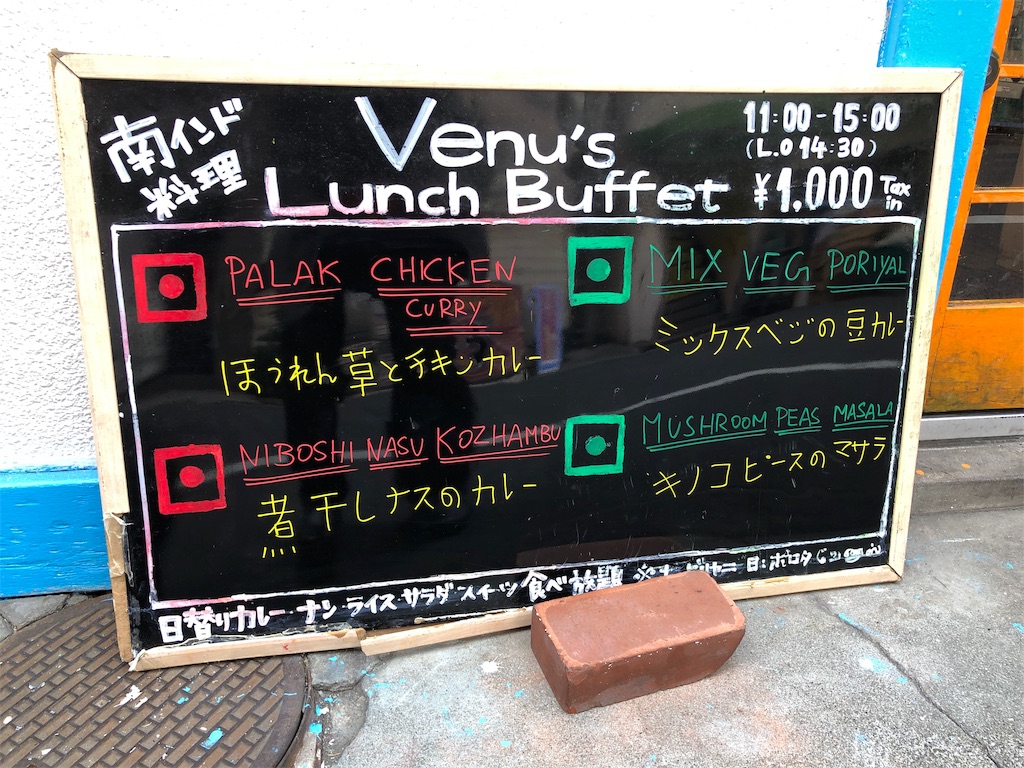 南インド
料理
Venu's
Lunch Buffet
11:00-15:00
(L.O 14:30)
¥1,000 Tax in
PALAK CHICKEN
CURRY
ほうれん草とチキンカレー
MIX VEG PORIYAL
ミックスベジの豆カレー
NIBOSHI NASU KOZHAMBU
煮干しナスのカレー
MUSHROOM PEAS MASALA
キノコピースのマサラ
日替りカレー ナン ライス サラダ スイーツ 食べ放題 日:ポロタ